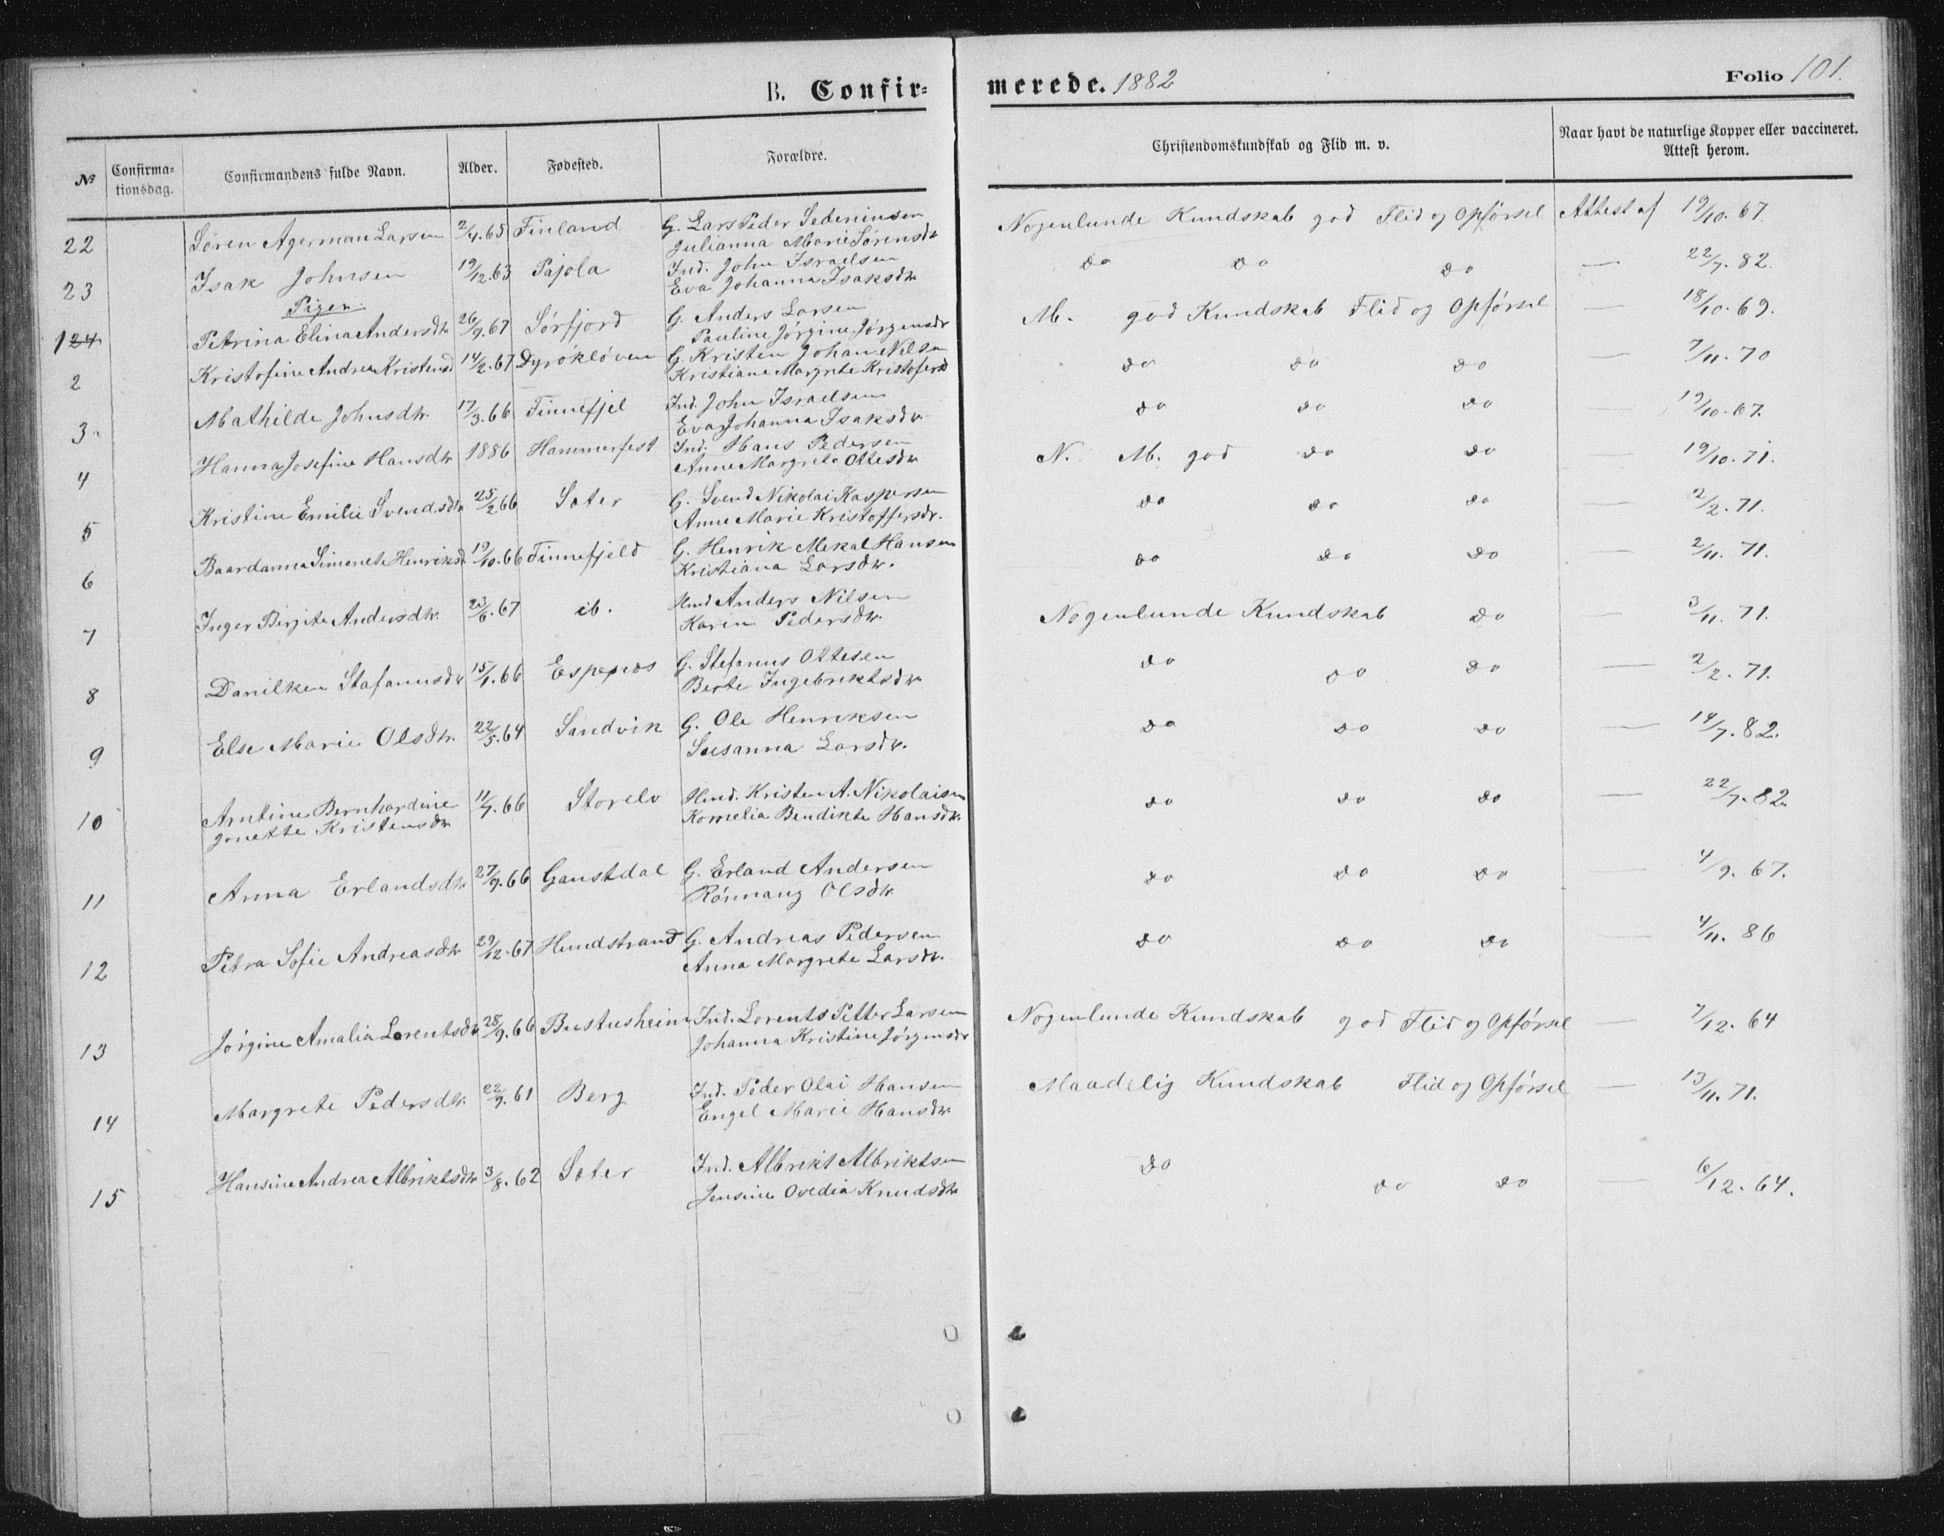 B. Confir- merede. 1882 Folio 101.
№ Confirma-tionsdag. Confirmandens fulde Navn. Alder. Fødested. Forældre. Christendomskundskab og Flid m. v. Naar havt de naturlige Kopper eller vaccineret. Attest herom.
22 Søren Agerman Larsen 2/4.65 Finland G. Lars Peder Nogenlunde Kundskab god Flid og Opførsel Attest af 19/10.67.
Julianna Marie Sørensdtr
23 Isak Johnsen 19/12.63 Pajola Ind. John Israelsen do do do — 22/7.82.
Eva Johanna Isaksdtr
Piger.
1 24 Petrina Elina Andersdtr 26/9.67 Sørfjord G. Anders Larsen M. god Kundskab Flid og Opførsel — 18/10.69.
Pauline Jørgine Jørgensdtr
2 Kristofine Andrea Kristensd 14/2.67 Dyrökløven G. Kristen Johan Nilsn do do do — 7/11.70
Kristiane Margrete Kristofersd
3 Mathilde Johnsdtr. 17/3.66 Finnefjel Ind. John Israelsen do do do — 19/10.67.
Eva Johanna Isaksdtr
4 Hanna Josefine Hansdtr 1886 Hammerfest Ind. Hans Pedersen N. M. god do do — 19/10.71.
Anne Margrete Ottesdtr
5 Kristine Emilie Svendsdtr 25/2.66 Sæter G. Svend Nikolai Kaspersen do do do — 2/2.71.
Anne Marie Kristoffersdr.
6 Baardanna Simonete Henriksd 19/10.66 Finnefjeld G. Henrik Mekal Hansen do do do — 2/11.71.
Kristiana Larsdtr.
7 Inger Birgite Andersdtr. 23/6.67 ib. Hmd Anders Nilsen Nogenlunde Kundskab do — 3/11.71.
Karen Pedersdtr.
8 Danilken Stafanusdtr 15/1.66 Espenæs G. Stefanus Ottesen do do do — 2/2.71.
Berte Ingebriktsdtr
9 Else Marie Olsdtr. 22/5.64 Sandvik G. Ole Henriksen do do do — 14/7.82.
Susanna Larsdtr.
10 Arntine Bernhardine 11/7.66 Storelv Hmd. Kristen A. Nikolaisen do do do — 22/7.82.
Jonette Kristensdtr Kornelia Bendikte Hansdtr.
11 Anna Erlandsdtr 27/9.66 Gaustdal G. Erland Andersen do do do — 4/9.67.
Rønnaug Olsdtr.
12 Petra Sofie Andreasdtr 29/12.67 Hundstrand G. Andreas Pedersen do do do — 4/11.86
Anna Margrete Larsdtr.
13 Jørgine Amalia Lorentsdtr 28/9.66 Bustusheim Ind. Lorents Petter Larsen Nogenlunde Kundskab god Flid og Opførsel — 7/12.64
Johanna Kristine Jørgensdtr
14 Margrete Pedersdtr. 22/9.61 Berg Ind. Peder Olai Hansen Maadelig Kundskab Flid og Opførsel — 13/11.71.
Engel Marie Hansdtr
15 Hansine Andrea Albriktsdtr 3/8.62 Sæter Ind. Albrikt Albriktsen do do do — 6/12.64.
Jensine Ovedia Knudsdtr